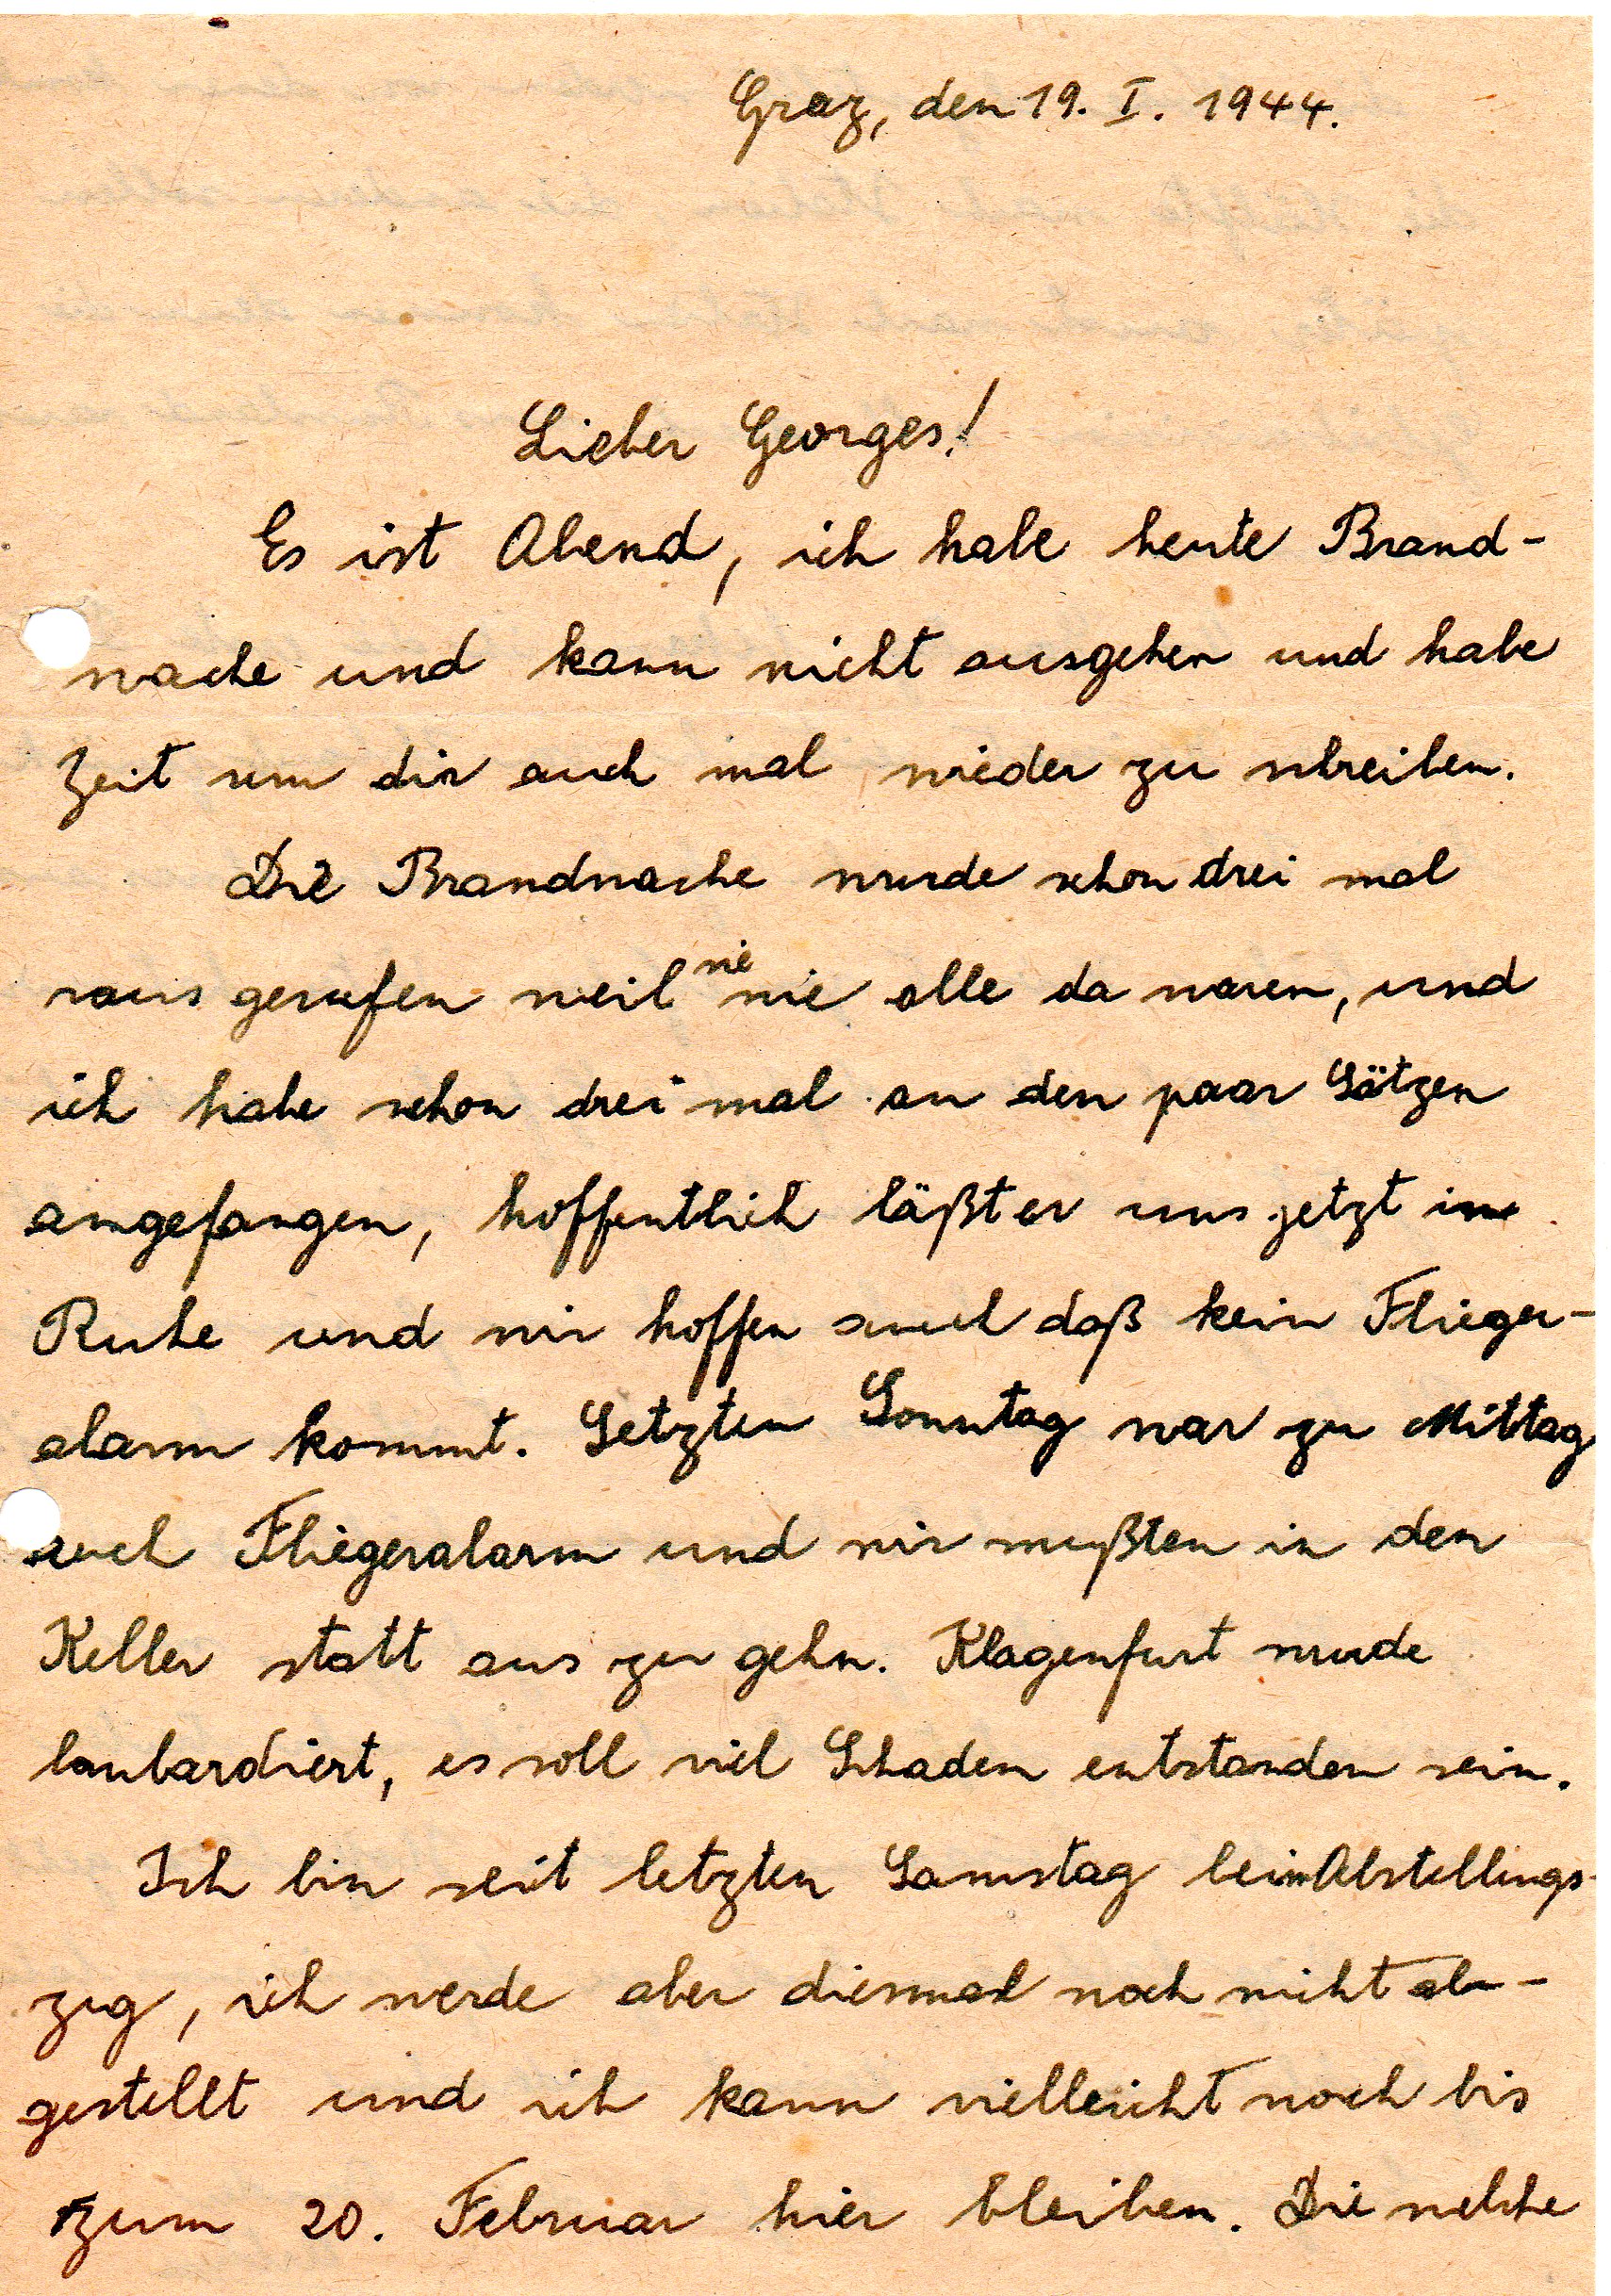 Graz, den 19. I. 1944.
Lieber Georges!
Es ist Abend, ich habe heute Brand-
wache und kann nicht ausgehen und habe
Zeit um dir auch mal wieder zu schreiben.
Die Brandwache wurde schon drei mal
raus gerufen weil wir nie alle da waren, und
ich habe schon drei mal an den paar Sätzen
angefangen, hoffentlich läßt er uns jetzt in
Ruhe und wir hoffen auch daß kein Flieger-
alarm kommt. Letzten Sonntag war zu Mittag
auch Fliegeralarm und wir mußten in den
Keller statt aus zu gehn. Klagenfurt wurde
bombardiert, es soll viel Schaden entstanden sein.
Ich bin seit letzten Samstag beim Abstellungs-
zug, ich werde aber diesmal noch nicht ab-
gestellt und ich kann vielleicht noch bis
zum 20. Februar hier bleiben. Die welche